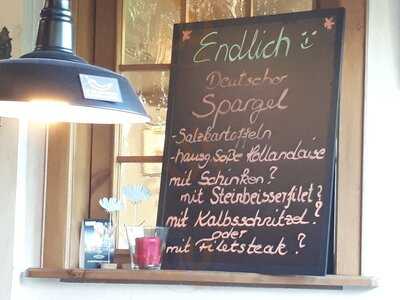 Endlich
Deutscher
Spargel
-Salzkartoffeln
-hausg. Soße Hollandaise
mit Schinken?
mit Steinbeisserfilet?
mit Kalbsschnitzel?
oder
mit Filetsteak?